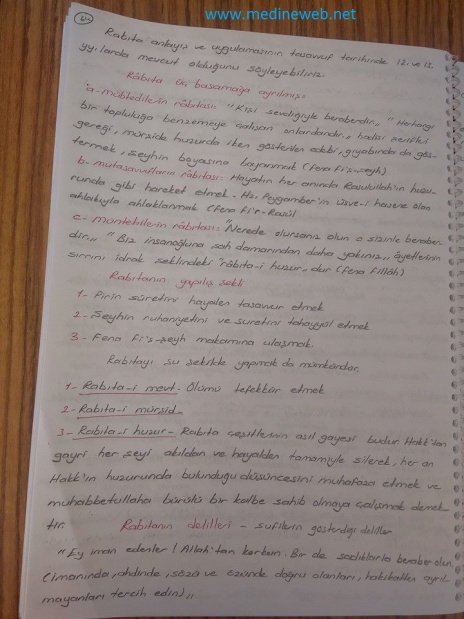 www.medineweb.net
Rabıta anlayış ve uygulamasının tasavvuf tarihinde 12. ve 13.
yy. larda mevcut olduğunu söyleyebiliriz.
Râbıta üç basamağa ayrılmış:
a- mübtedilerin râbıtası: "Kişi sevdiğiyle beraberdir," "Herhangi
bir topluluğa benzemeye çalışan onlardandır," hadisi şerifleri
gereği, mürşide huzurda iken gösterilen edebi, gıyabında da gös-
termek, şeyhin boyasına boyanmak (fena fi'ş-şeyh)
b- mutasavvıfların râbıtası: Hayatın her anında Rasulullah'ın huzu-
runda gibi hareket etmek. Hz. Peygamber'in üsve-i hasene olan
ahlakıyla ahlaklanmak (fena fi'r-Rasûl
c- müntehilerin râbıtası: "Nerede olursanız olun o sizinle beraber-
dir.," "Biz insanoğluna şah damarından daha yakınız," âyetlerinin
sırrını idrak şeklindeki "râbıta-i huzur" dur (fena fillâh)
Rabıtanın yapılış şekli
1- Pirin sûretini hayalen tasavvur etmek
2- Şeyhin ruhaniyetini ve suretini tahayyül etmek
3- Fena fi'ş-şeyh makamına ulaşmak.
Rabıtayı şu şekilde yapmak da mümkündür.
1- Rabıta-i mevt- Ölümü tefekkür etmek
2- Rabıta-i mürşid-
3- Rabıta-i huzur- Rabıta çeşitlerinin asıl gayesi budur Hakk'tan
gayri her şeyi akıldan ve hayalden tamamıyle silerek, her an
Hakk'ın huzurunda bulunduğu düşüncesini muhafaza etmek ve
muhabbetullaha bürülü bir kalbe sahib olmaya çalışmak demek-
tir.
Rabıtanın delilleri - sufilerin gösterdiği deliller
"Ey iman edenler! Allah'tan korkun. Bir de sadıklarla beraber olun
(imanında, ahdinde, sözü ve özünde doğru olanları, hakikatten ayrıl-
mayanları tercih edin),,